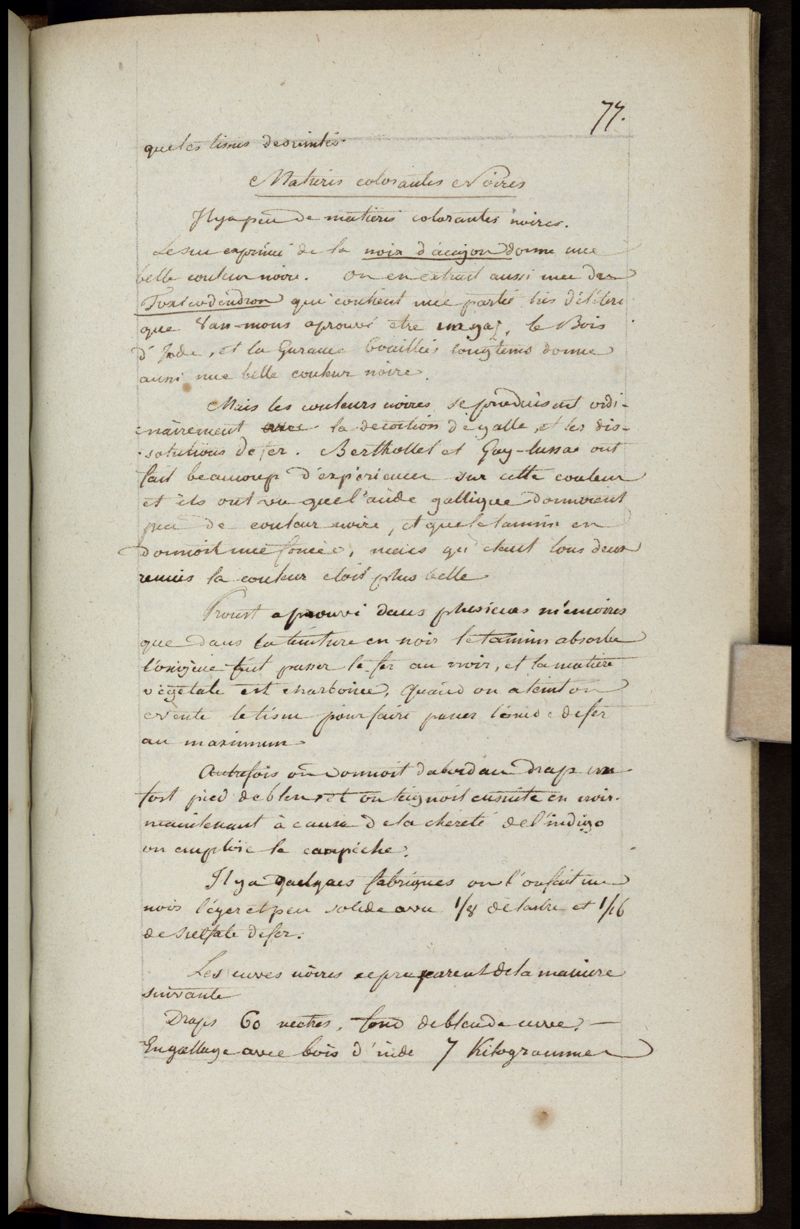 77.
que les tissus desuintés.
Matieres colorantes Noires
Il y a peu de matieres colorantes noires.
Le suc exprimé de la noix d'acajou donne une
belle couleur noire. on en extrait aussi une du
Toxicodendron qui contient une partie très délétere
que Van-mons a prouvé etre un gaz, le Bois
d'Inde, et la Garance bouillies longtems donne
aussi une belle couleur noire.
Mais les couleurs noires se produisent ordi-
nairement avec la decoction de galle et les dis-
solutions de fer. Berthollet et Gay-lussac ont
fait beaucoup d'expériences sur cette couleur
et ils ont vu que l'acide gallique donnoient
peu de couleur noire, et que le tannin en
donnoit une foncée, mais qu'etant tous deux
reunis la couleur etoit plus belle
Proust a prouvé dans plusieurs mémoires
que dans la teinture en noir le tannin absorbe
l'oxigène fait passer le fer au noir, et la matiere
végétale est charbonée, Quand on a teint on
évente le tissu pour faire passer l'oxide de fer
au maximum
Autrefois on donnoit d'abord au Drap un
fort pied de bleu et on teignoit ensuite en noir.
maintenant à cause de la chereté de l'indigo
on emploie le campêche.
Il y a quelques fabriques ou l'on fait un
noir léger et peu solide avec 1/8 de tartre et 1/16
de sulfate de fer.
Les cuves noires se preparent de la maniere
suivante
Draps 60 metres, fond de bleu de cuve, —
Engallage avec bois d'inde 7 Kilogrammes